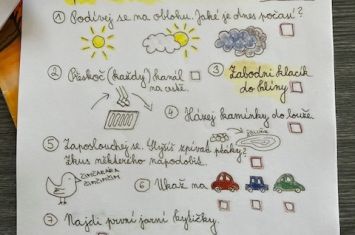 ① Podívej se na oblohu. Jaké je dnes počasí?
② Přeskoč (každý) kanál na cestě.
③ Zabodni klacík do hlíny
④ Házej kamínky do louže.
⑤ Zaposlouchej se. Slyšíš zpívat ptáky?
Zkus některého napodobit.
ČIMČARARA
ČIMČIMČIM
⑥ Ukaž na
⑦ Najdi první jarní kytičky.